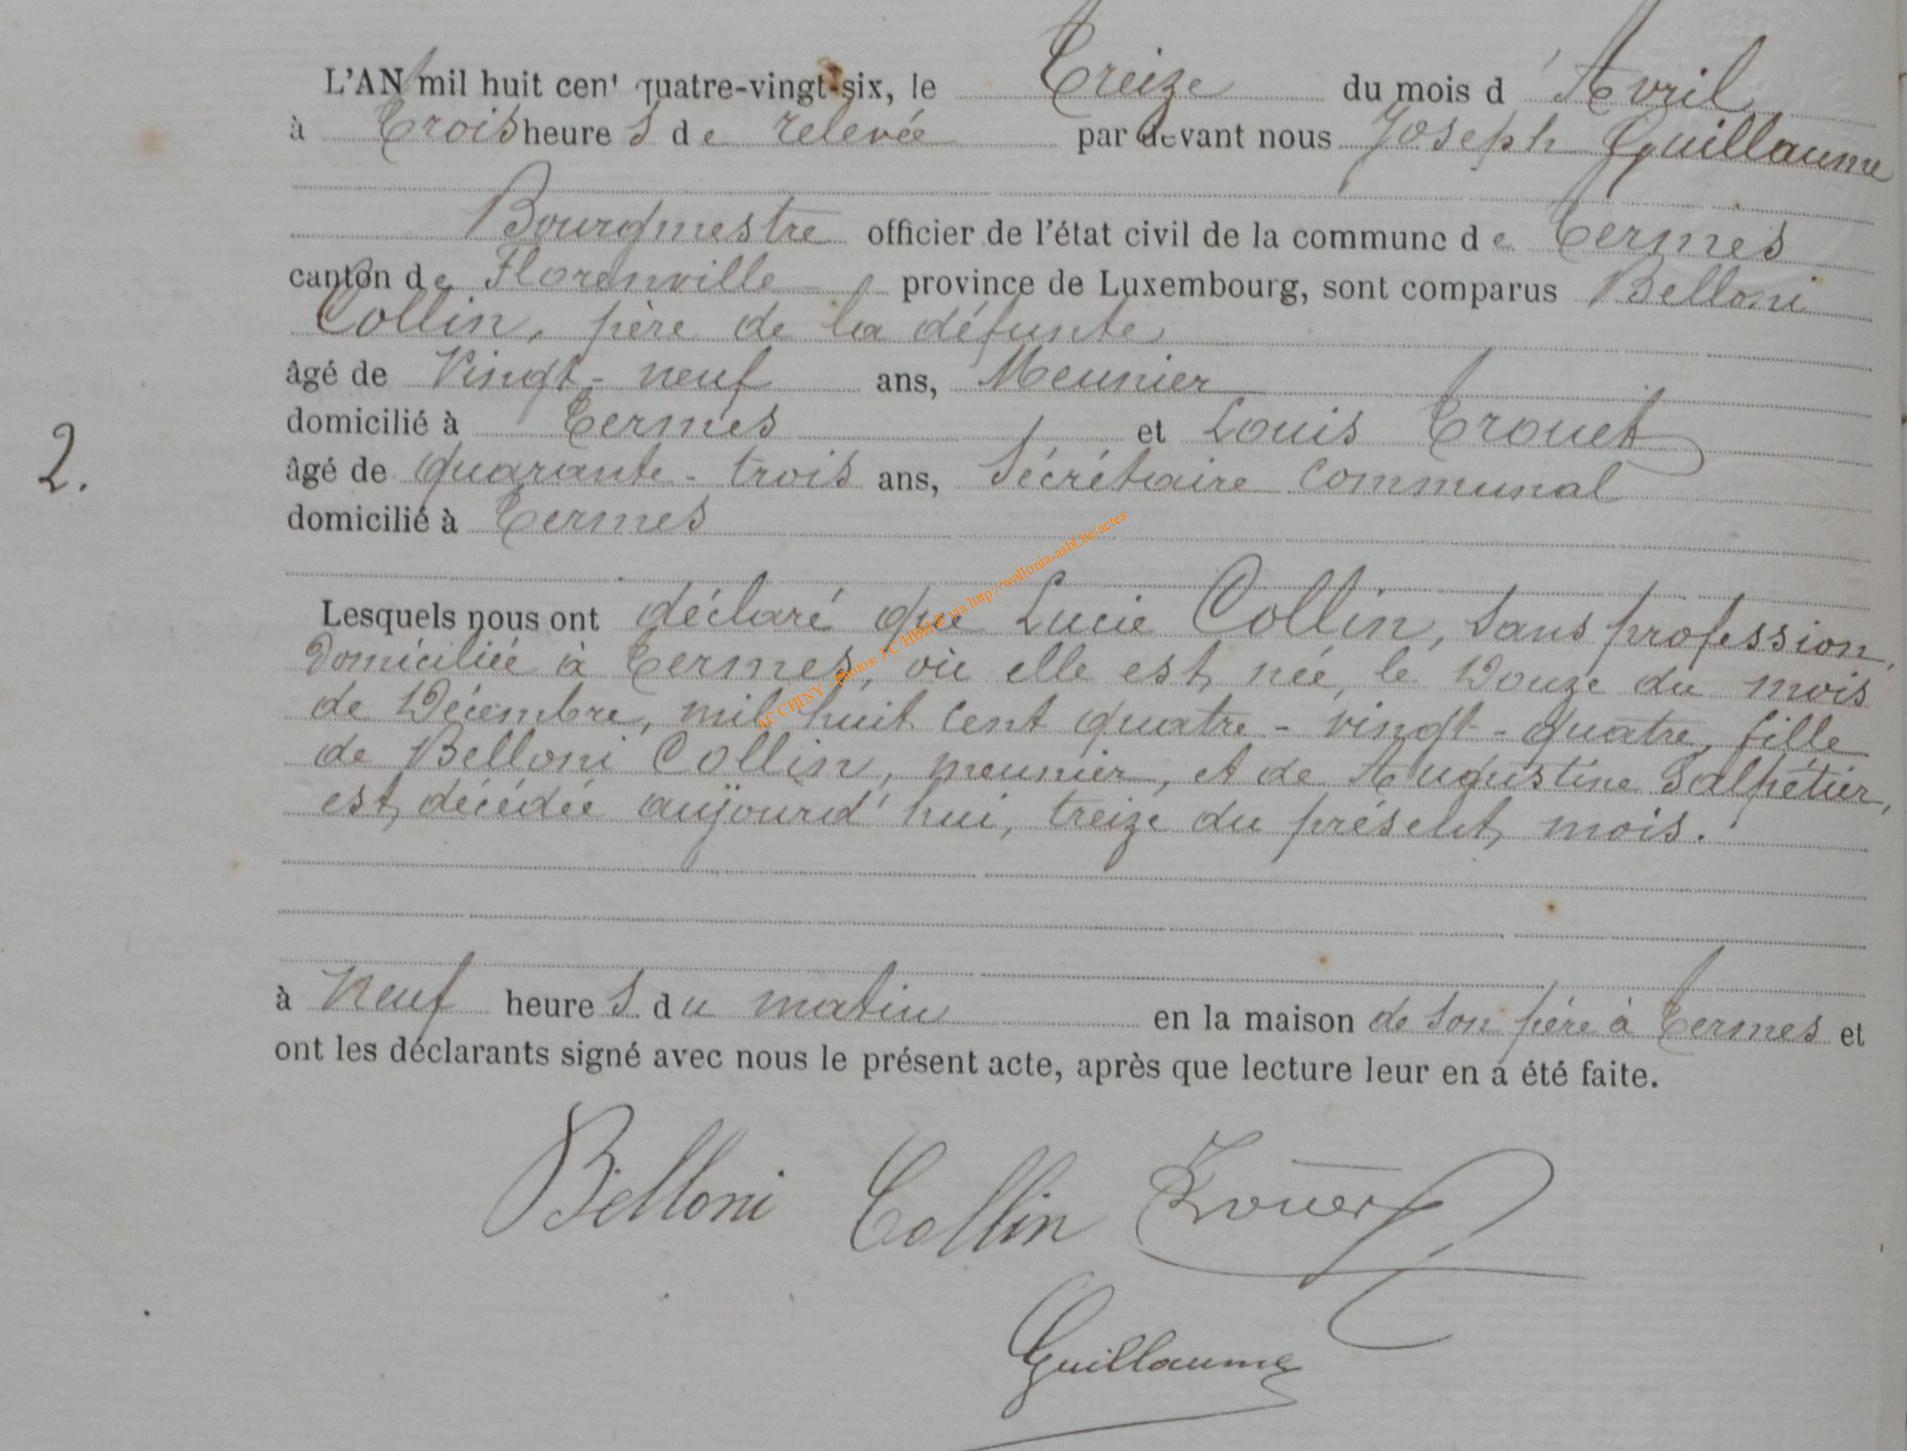 L'AN mil huit cent quatre-vingt-six, le Treize du mois d'Avril
à Trois heures de relevée par devant nous Joseph Guillaume
Bourgmestre officier de l'état civil de la commune de Termes
canton de Florenville province de Luxembourg, sont comparus Belloni
Collin, père de la défunte
âgé de Vingt-neuf ans, Meunier
domicilié à Termes et Louis Trouet
2.
âgé de quarante-trois ans, Sécrétaire Communal
domicilié à Termes
Lesquels nous ont déclaré que Lucie Collin, sans profession,
Domiciliée à Termes, où elle est née, le Douze du mois
de Décembre, mil huit cent quatre-vingt-quatre, fille
de Belloni Collin, meunier, et de Augustine Salpétier,
est décédée aujourd'hui, treize du présent mois.
AC CHINY - Photos: J.C. HBH © via http://wallonia-asbl.be/actes
à Neuf heures du matin en la maison de son père à Termes et
ont les déclarants signé avec nous le présent acte, après que lecture leur en a été faite.
Belloni Collin Trouet
Guillaume